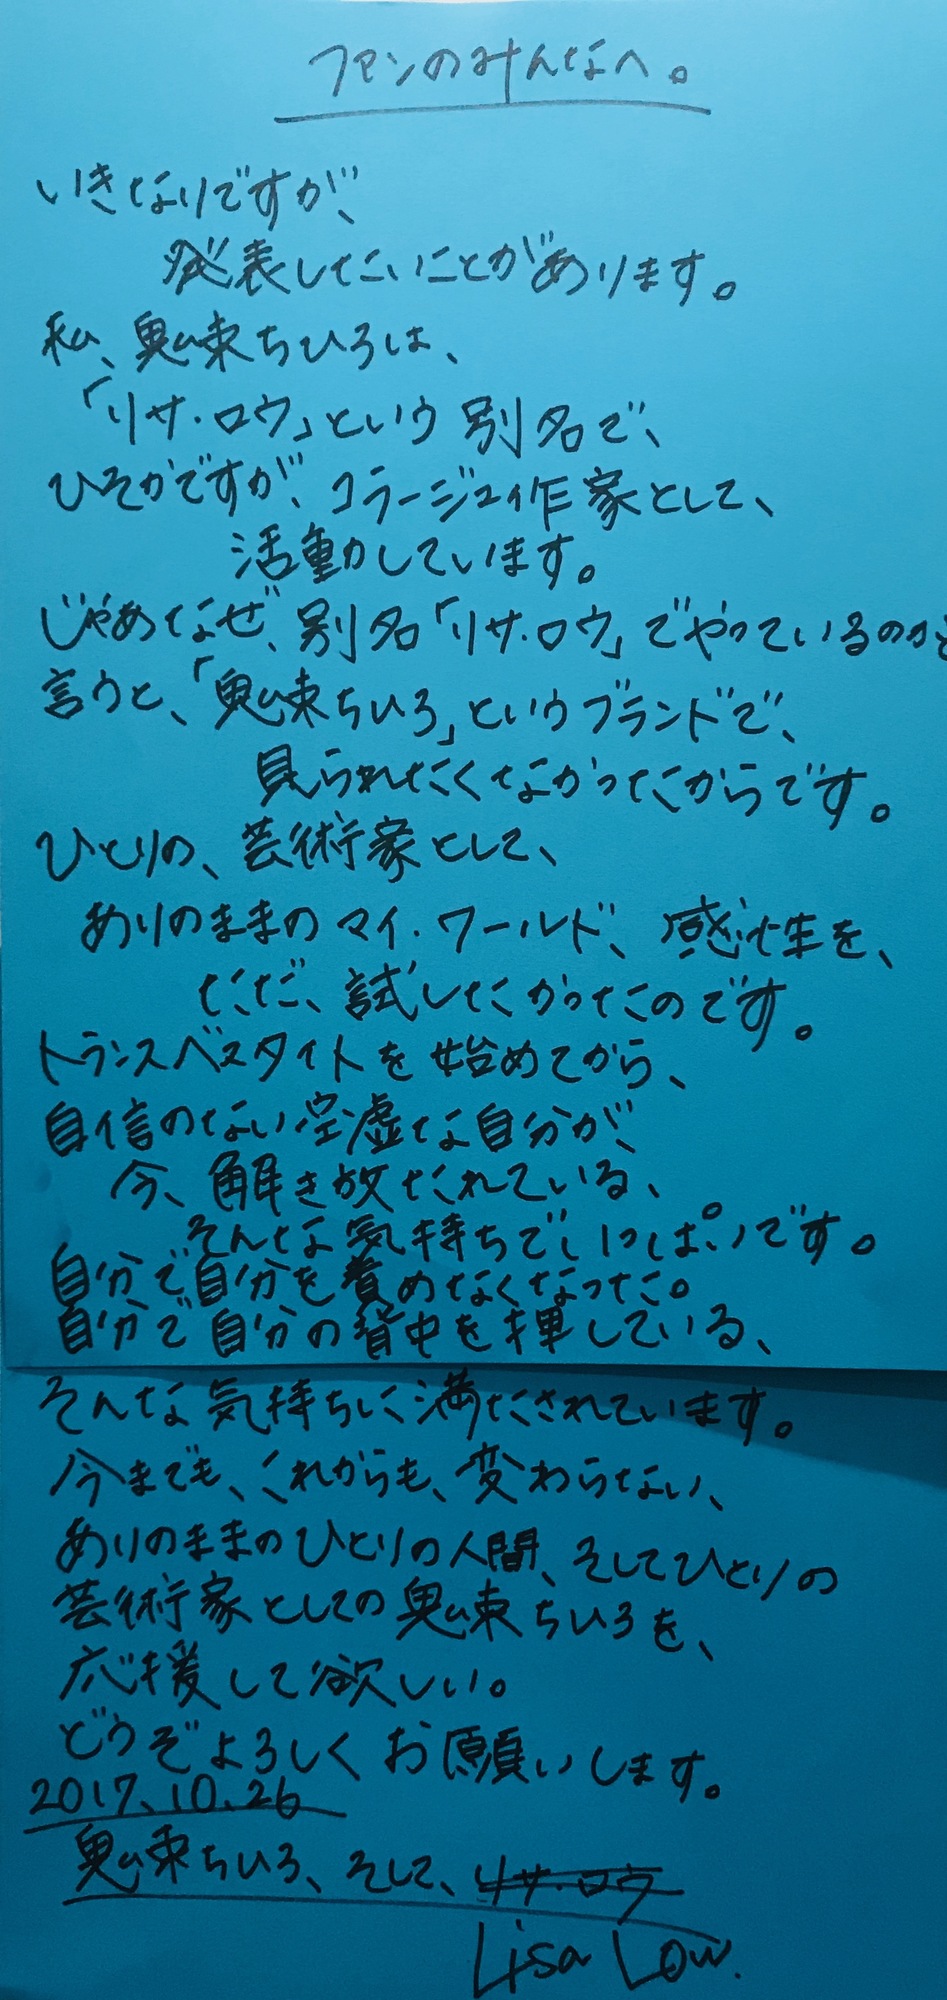 ファンのみんなへ。
いきなりですが、
発表したいことがあります。
私、鬼束ちひろは、
「リサ・ロウ」という別名で、
ひそかですが、コラージュ作家として、
活動しています。
じゃあなぜ、別名「リサ・ロウ」でやっているのかと
言うと、「鬼束ちひろ」というブランドで、
見られたくなかったからです。
ひとりの、芸術家として、
ありのままのマイ・ワールド、感性を、
ただ、試したかったのです。
トランスベスタイトを始めてから、
自信のない空虚な自分が、
今、解き放たれている、
そんな気持ちでいっぱいです。
自分で自分を責めなくなった。
自分で自分の背中を押している、
そんな気持ちに満たされています。
今までも、これからも、変わらない、
ありのままのひとりの人間、そしてひとりの
芸術家としての鬼束ちひろを、
応援して欲しい。
どうぞよろしくお願いします。
2017.10.26
鬼束ちひろ、そして、リサ・ロウ
Lisa Low.